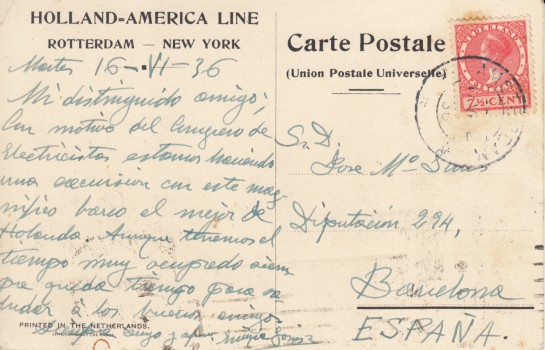 HOLLAND=AMERICA LINE
ROTTERDAM — NEW YORK
Martes 16-VI-36
Mi distinguido amigo:
Con motivo del Congreso de
Electricistas estamos haciendo
una excursion con este mag
nifico barco el mejor de
Holanda. Aunque tenemos el
tiempo muy ocupado siem
pre queda tiempo para sa
ludar á los buenos amigos.
PRINTED IN THE NETHERLANDS.
Carte Postale
(Union Postale Universelle)
7½ CENT
AMSTERDAM
S. D.
Jose Mª
Diputación 294,
Barcelona
ESPAÑA.